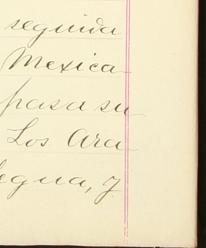 seguida
Mexica
pasa su
Los Ara
legua, y